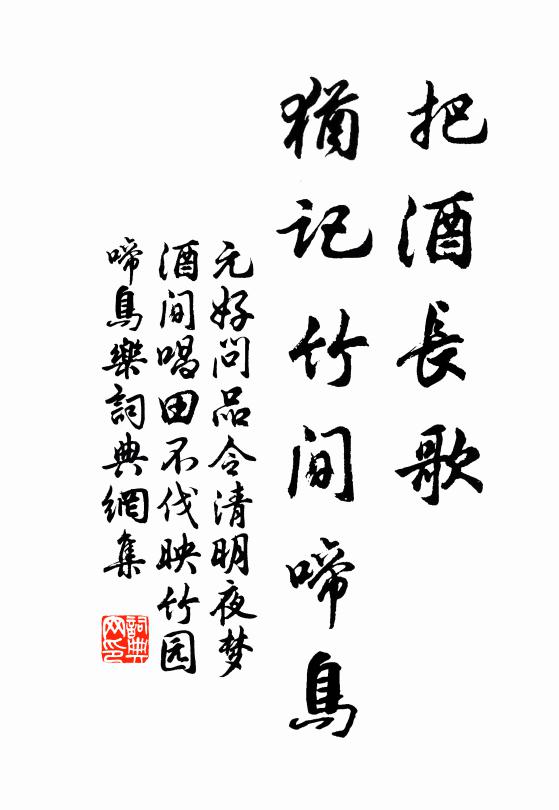 把酒長歌
猶記竹間啼鳥
元好问品令清明夜梦
酒间唱田不伐映竹园
啼鳥樂詞典網集
詞典
网印